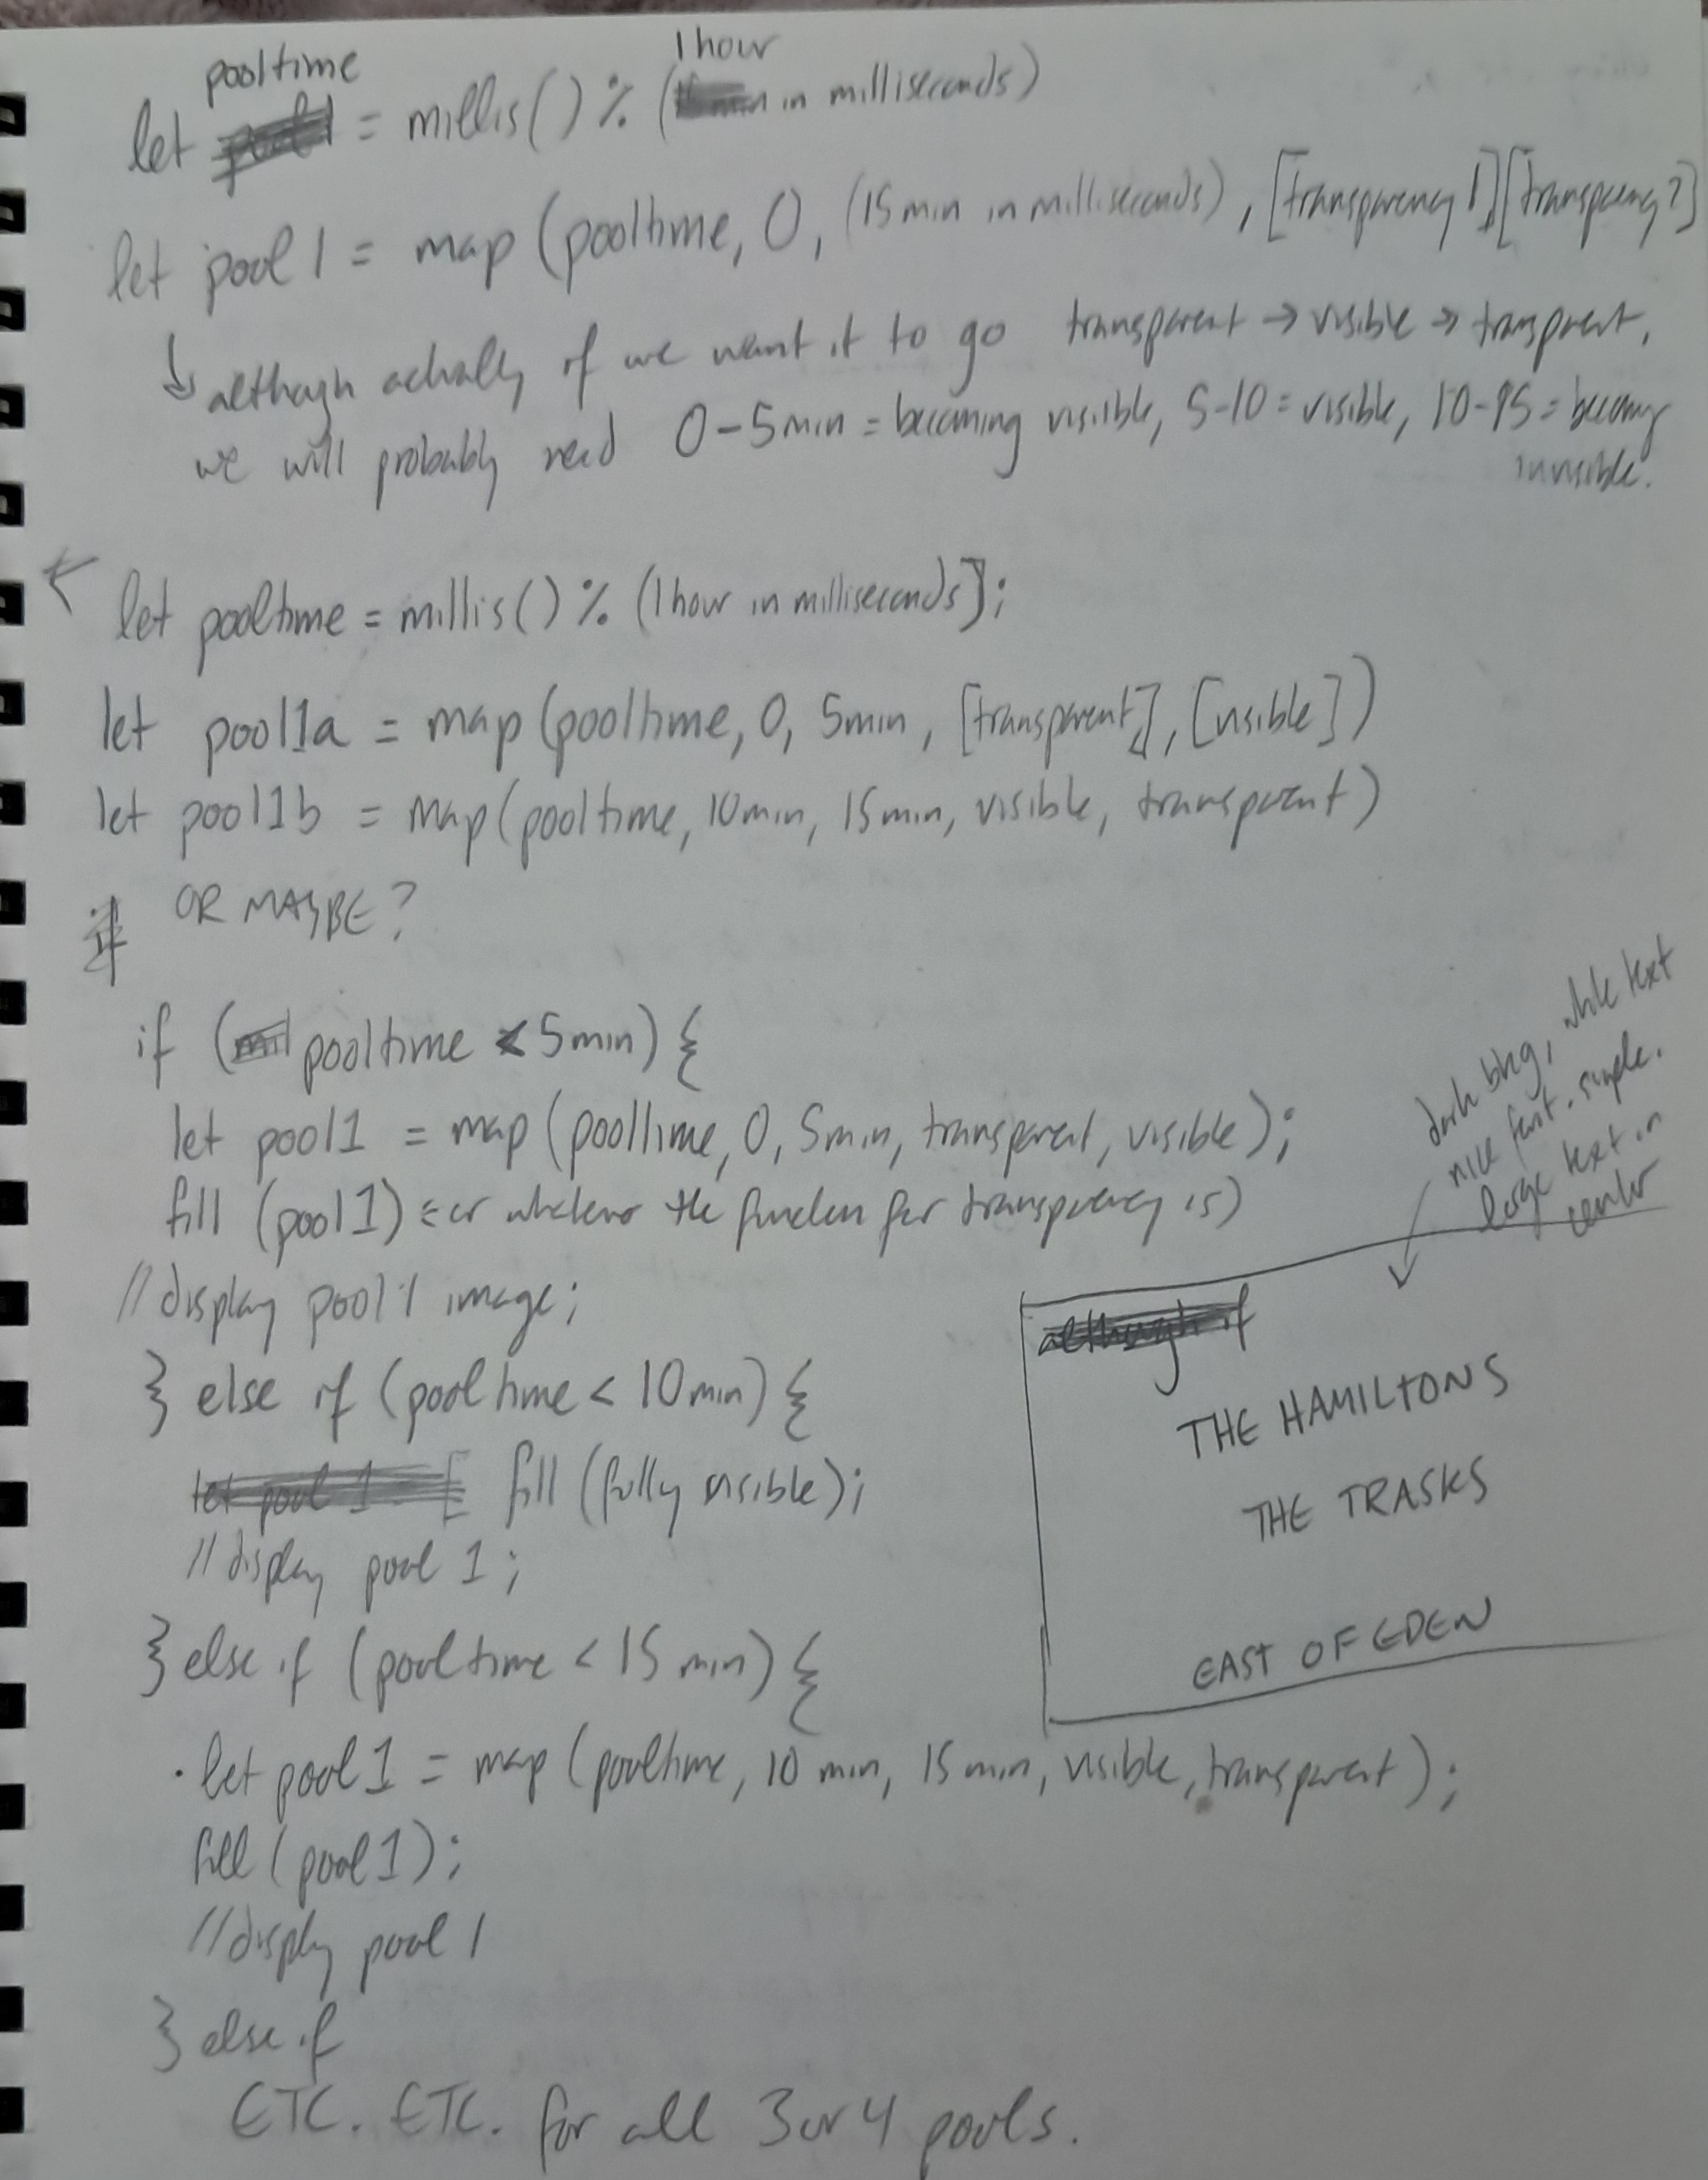 pooltime 1 hour
let pool1 = millis() % (min in milliseconds)
let pool 1 = map (pooltime, 0, (15 min in milliseconds), [transparency 1], [transparency 2]
↳ although actually if we want it to go transparent → visible → transparent,
we will probably need 0-5min = becoming visible, 5-10 = visible, 10-15 = becoming
invisible.
let pooltime = millis() % (1 hour in milliseconds];
let pool1a = map (pooltime, 0, 5min, [transparent], [visible])
let pool1b = map (pooltime, 10min, 15min, visible, transparent)
if OR MAYBE?
if (mil pooltime < 5min) {
let pool1 = map (pooltime, 0, 5min, transparent, visible);
fill (pool1) (or whatever the function for transparency is)
// display pool 1 image;
} else if (pooltime < 10min) {
let pool 1 fill (fully visible);
// display pool 1;
} else if (pooltime < 15 min) {
• let pool 1 = map (pooltime, 10 min, 15 min, visible, transparent);
fill (pool 1);
// display pool 1
} else if
ETC. ETC. for all 3 or 4 pools.
dark bkg, white text
nice font. simple.
large text in
center
although if
THE HAMILTONS
THE TRASKS
EAST OF EDEN